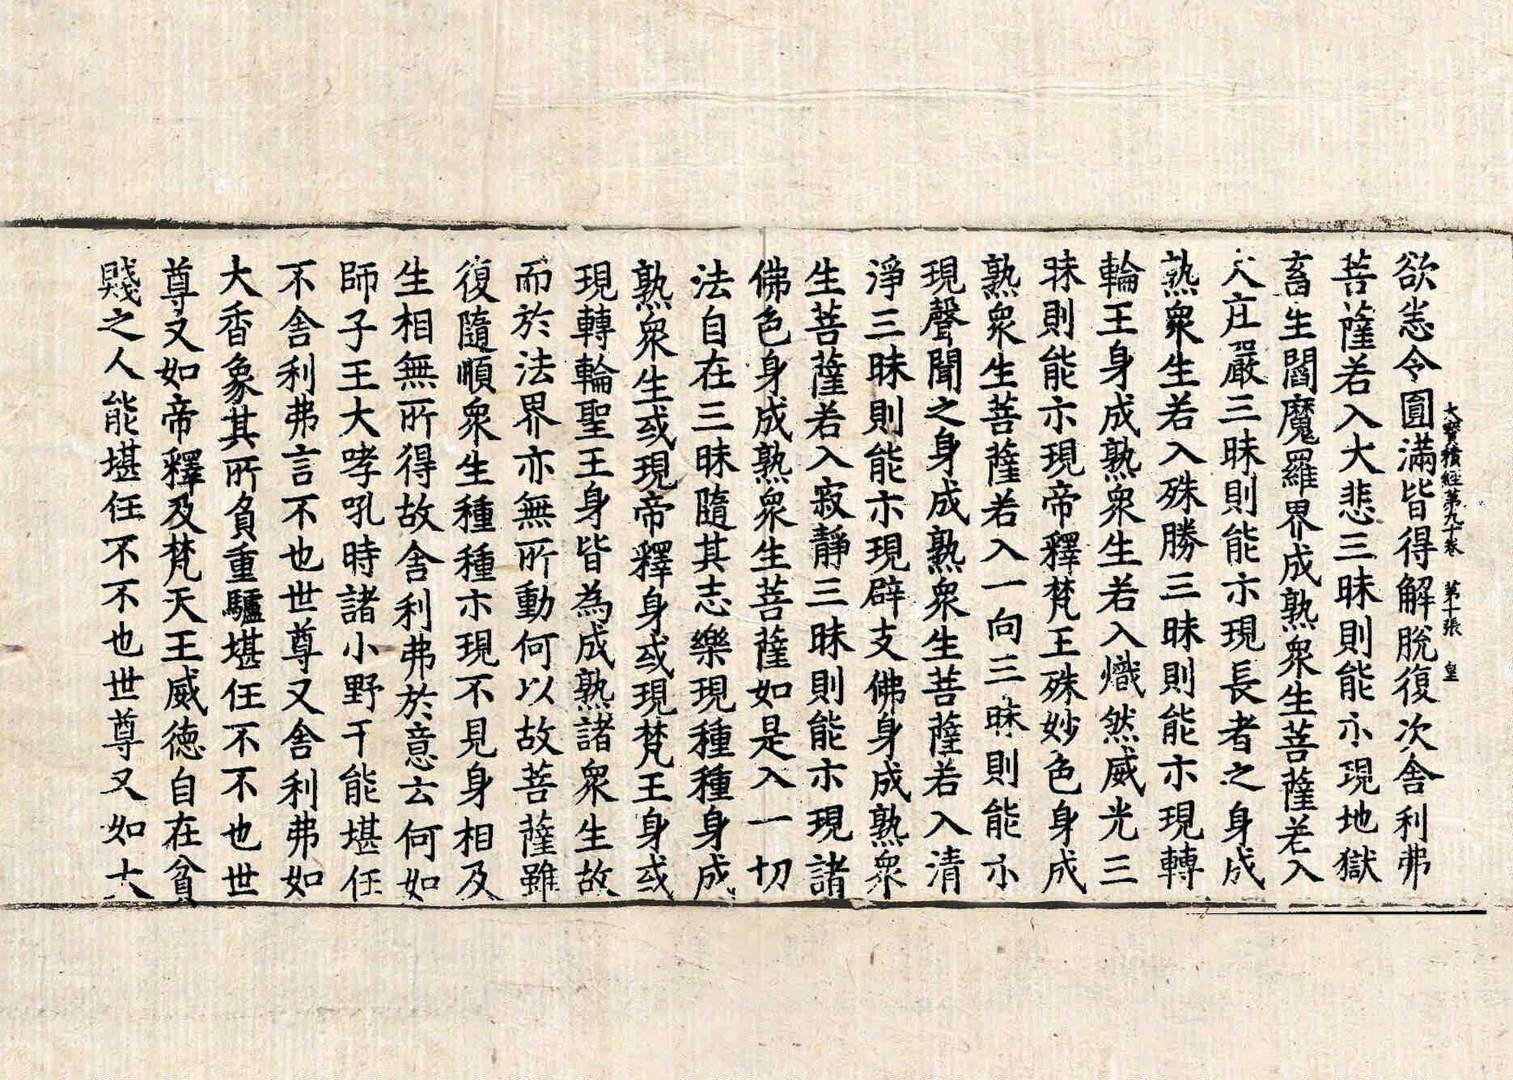 大寶積經第九十卷 第十張 皇
欲恙令圓滿皆得解脫復次舍利弗
菩薩若入大悲三昧則能示現地獄
畜生閻魔羅界成熟衆生菩薩若入
大庄嚴三昧則能示現長者之身成
熟衆生若入殊勝三昧則能示現轉
輪王身成熟衆生若入熾然威光三
昧則能示現帝釋梵王殊妙色身成
熟衆生菩薩若入一向三昧則能示
現聲聞之身成熟衆生菩薩若入清
淨三昧則能示現辟支佛身成熟衆
生菩薩若入寂靜三昧則能示現諸
佛色身成熟衆生菩薩如是入一切
法自在三昧隨其志樂現種種身成
熟衆生或現帝釋身或現梵王身或
現轉輪聖王身皆為成熟諸衆生故
而於法界亦無所動何以故菩薩雖
復隨順衆生種種示現不見身相及
生相無所得故舍利弗於意云何如
師子王大哮吼時諸小野干能堪任
不舍利弗言不也世尊又舍利弗如
大香象其所負重驢堪任不不也世
尊又如帝釋及梵天王威德自在貧
賤之人能堪任不不也世尊又如大